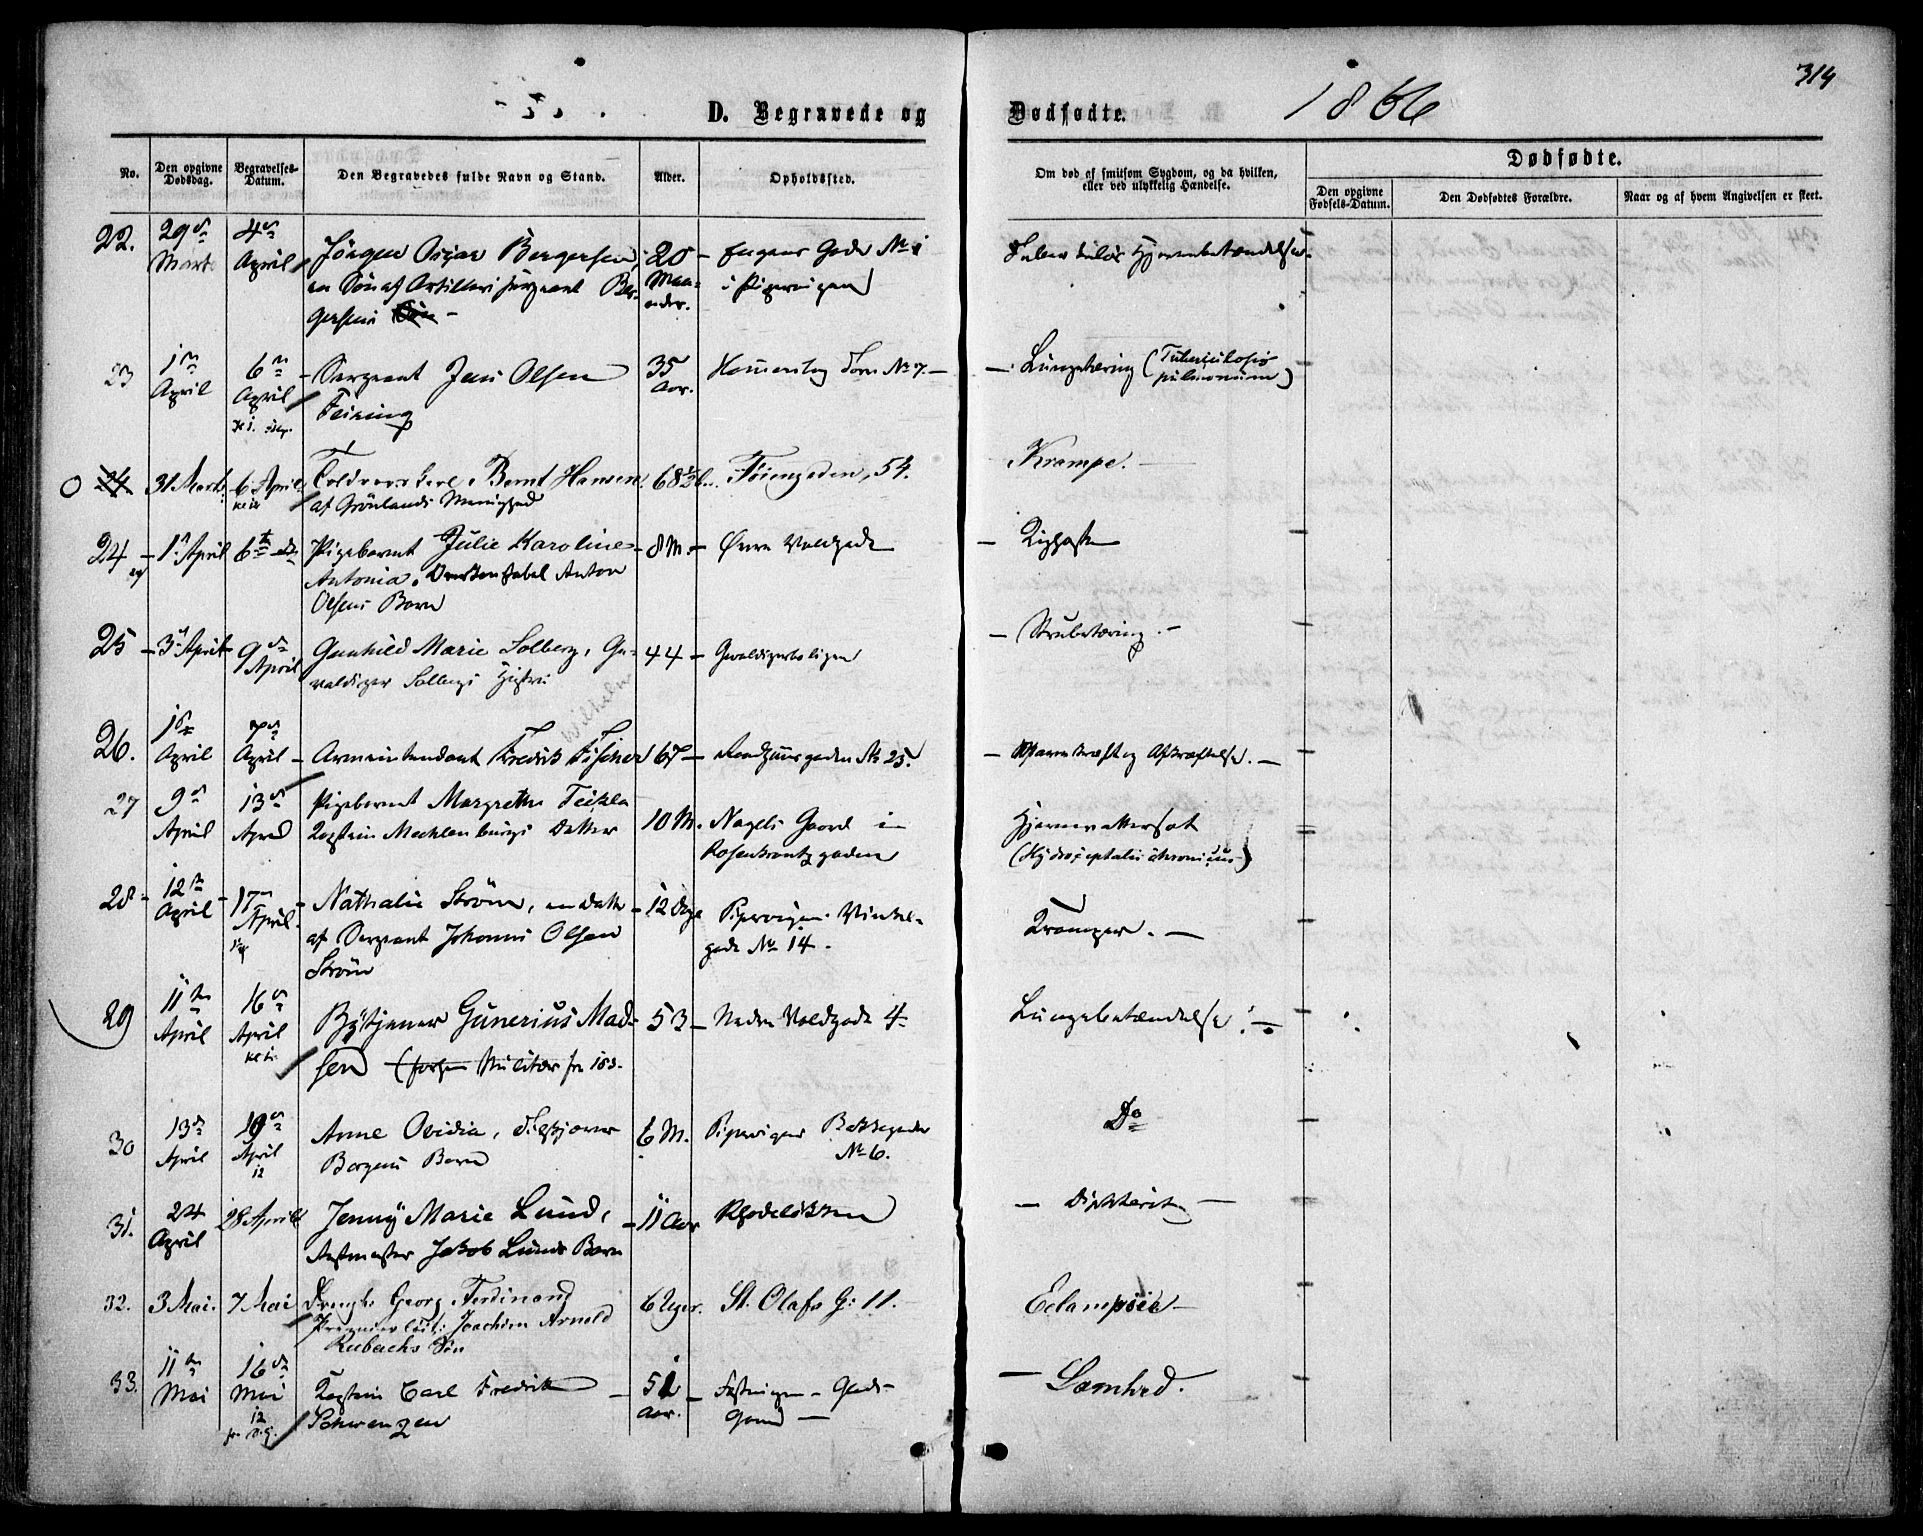 314
D. Begravede og Dødfødte. 1866
No.
Den opgivne Dødsdag.
Begravelses-Datum.
Den Begravedes fulde Navn og Stand.
Alder.
Opholdssted.
Om død af smitsom Sygdom, og da hvilken, eller ved ulykkelig Hændelse.
Dødfødte.
Den opgivne Fødsels-Datum.
Den Dødfødtes Forældre.
Naar og af hvem Angivelsen er skeet.
22. 29de Marts 4de April Jörgen Oscar Bergersen, 20 Maaneder.
en Søn af Artillerisergeant Bergersen
i Pipervigen
23 1ste April 6te April Sergeant Jens Olsen 35 Aar. No 7. — Lungetæring (Tuberculosis pulmonum)
Feiring
24. 31 Marts 6 April Bernt Hansen 68½ Töiengaden, 54. Krampe.
af Grönlands Menighed
24 1. April 6te Pigebarnet Julie Karoline 8 M. Øvre Voldgade Kighoste
Antonia, Overkonstabel Anton
Olsens Barn
25 3. April 9de April Gunhild Marie Solberg, Ge- 44 Gevaldigerboligen — Strubetæring. —
valdiger Solbergs Hustru
Wilhelm
26. 1ste April 7de April Armeintendant Fredrik Fischer 67 No 25. — og Afkræftelse. —
27 9de April 13de April Pigebarnet Margrethe Thekla 10 M. Nagels Gaard i Rosenkrantzgaden Hjernevattersot
Kaptein Mechlenburgs Datter (Hydrocephalus chronicus)
28 12te April 17de April Nathalie Ström, en Datter 12 Dage Pipervigen Vinkel-
af Sergeant Johannes Olsen gade No 14. Kramper. —
Ström
29 11te April 16de April Gunerius Mad- 53 Nedre Voldgade 4 Lungebetændelse. —
sen Militær
30 13de April 19de April Anne Ovidia, 6 M. Pipervigen Bakkegaden No 6. Do
Borgens Barn
31. 24 April 28 April Jenny Marie Lund, 11 Aar Rhodeløkken — Diphtherit —
Jakob Lunds Barn
32. 3 Mai. 7 Mai Drengb. Georg Ferdinand 6 Uger. St. Olafs G: 11. Eclampsie —
Premierløit: Joachim Arnold
Rubachs Søn
33. 11te Mai 16de Mai Kaptein Carl Fredrik 51 Aar. Fæstningen — Sømhed.
Schwenzen